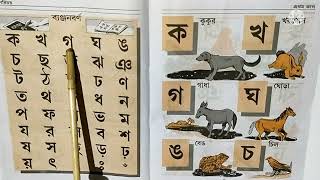 ব্যঞ্জনবর্ণ
ক খ গ ঘ ঙ
চ ছ ঝ ঞ
ট ঠ ঢ ণ
ত থ ধ ন
প ফ ভ ম
য র শ
ষ স ড় ঢ়
য় ৎ
ক কুকুর খ খরগোশ
গ গাধা ঘ ঘোড়া
ঙ বেঙ চ চিল